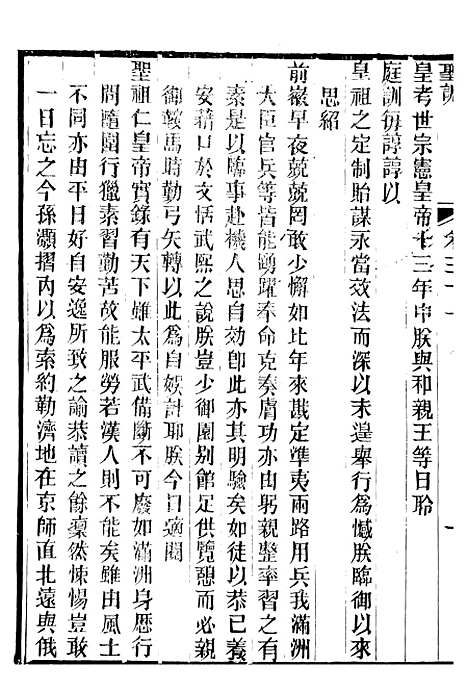 聖訓 卷三十一
皇考世宗憲皇帝十三年中朕與和親王等日聆
庭訓每諄諄以
皇祖之定制貽謀永當效法而深以未遑舉行爲憾朕臨御以來
思紹
前徽早夜兢兢罔敢少懈如比年來戡定準夷兩路用兵我滿洲
大臣官兵等皆能踴躍奉命克奏膚功亦由躬親整率習之有
素是以臨事赴機人思自効卽此亦其明驗矣如徒以恭己養
安藉口於文恬武熙之說朕豈少御園別館足供覽憩而必親
御鞍馬時勤弓矢轉以此爲自娛計耶朕今日適閱
聖祖仁皇帝實錄有天下雖太平武備斷不可廢如滿洲身歷行
間隨圍行獵素習勤苦故能服勞若漢人則不能矣雖由風土
不同亦由平日好自安逸所致之諭恭讀之餘凜然悚惕豈敢
一日忘之今孫灝摺內以爲索約勒濟地在京師直北遠與俄